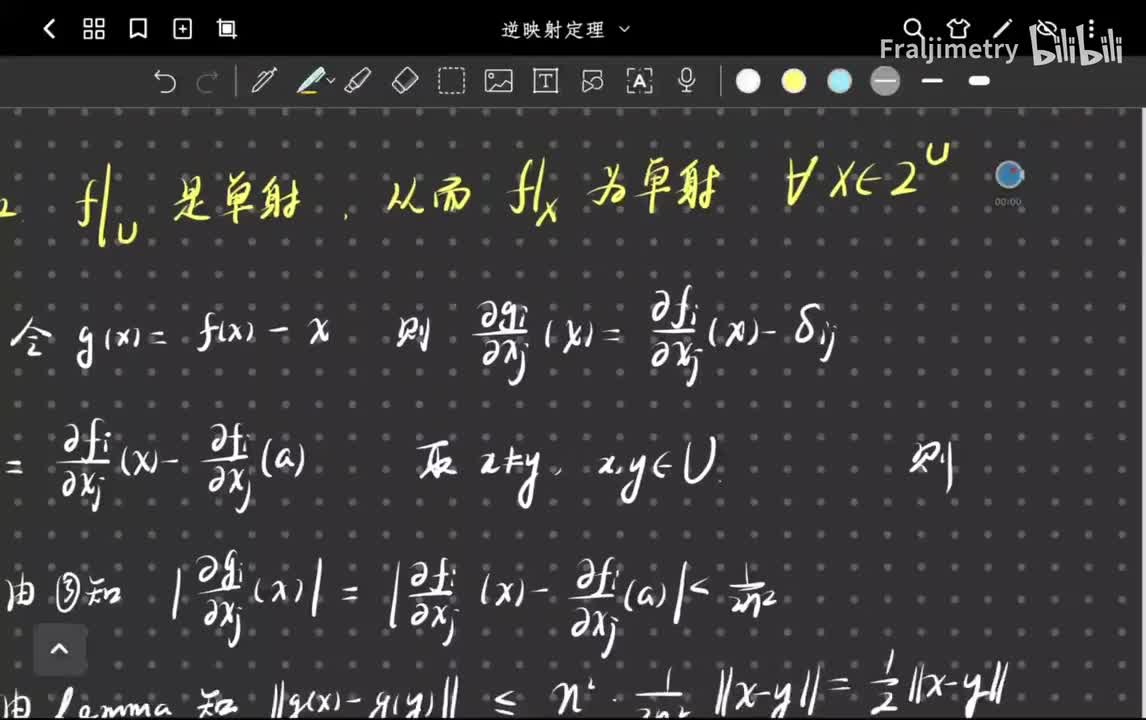 逆映射定理
Fraljimetry bilibili
2. f|_U 是单射，从而 f|_X 为单射 ∀ X∈2^U
00:00
令 g(x) = f(x) - x 则 ∂g_i/∂x_j (x) = ∂f_i/∂x_j (x) - δ_ij
= ∂f_i/∂x_j (x) - ∂f_i/∂x_j (a) 取 x≠y, x,y∈U. 则
由 ③知 |∂g_i/∂x_j (x)| = |∂f_i/∂x_j (x) - ∂f_i/∂x_j (a)| < 1/2n²
由 lemma 知 ||g(x)-g(y)|| ≤ n² · 1/2n² ||x-y|| = 1/2 ||x-y||